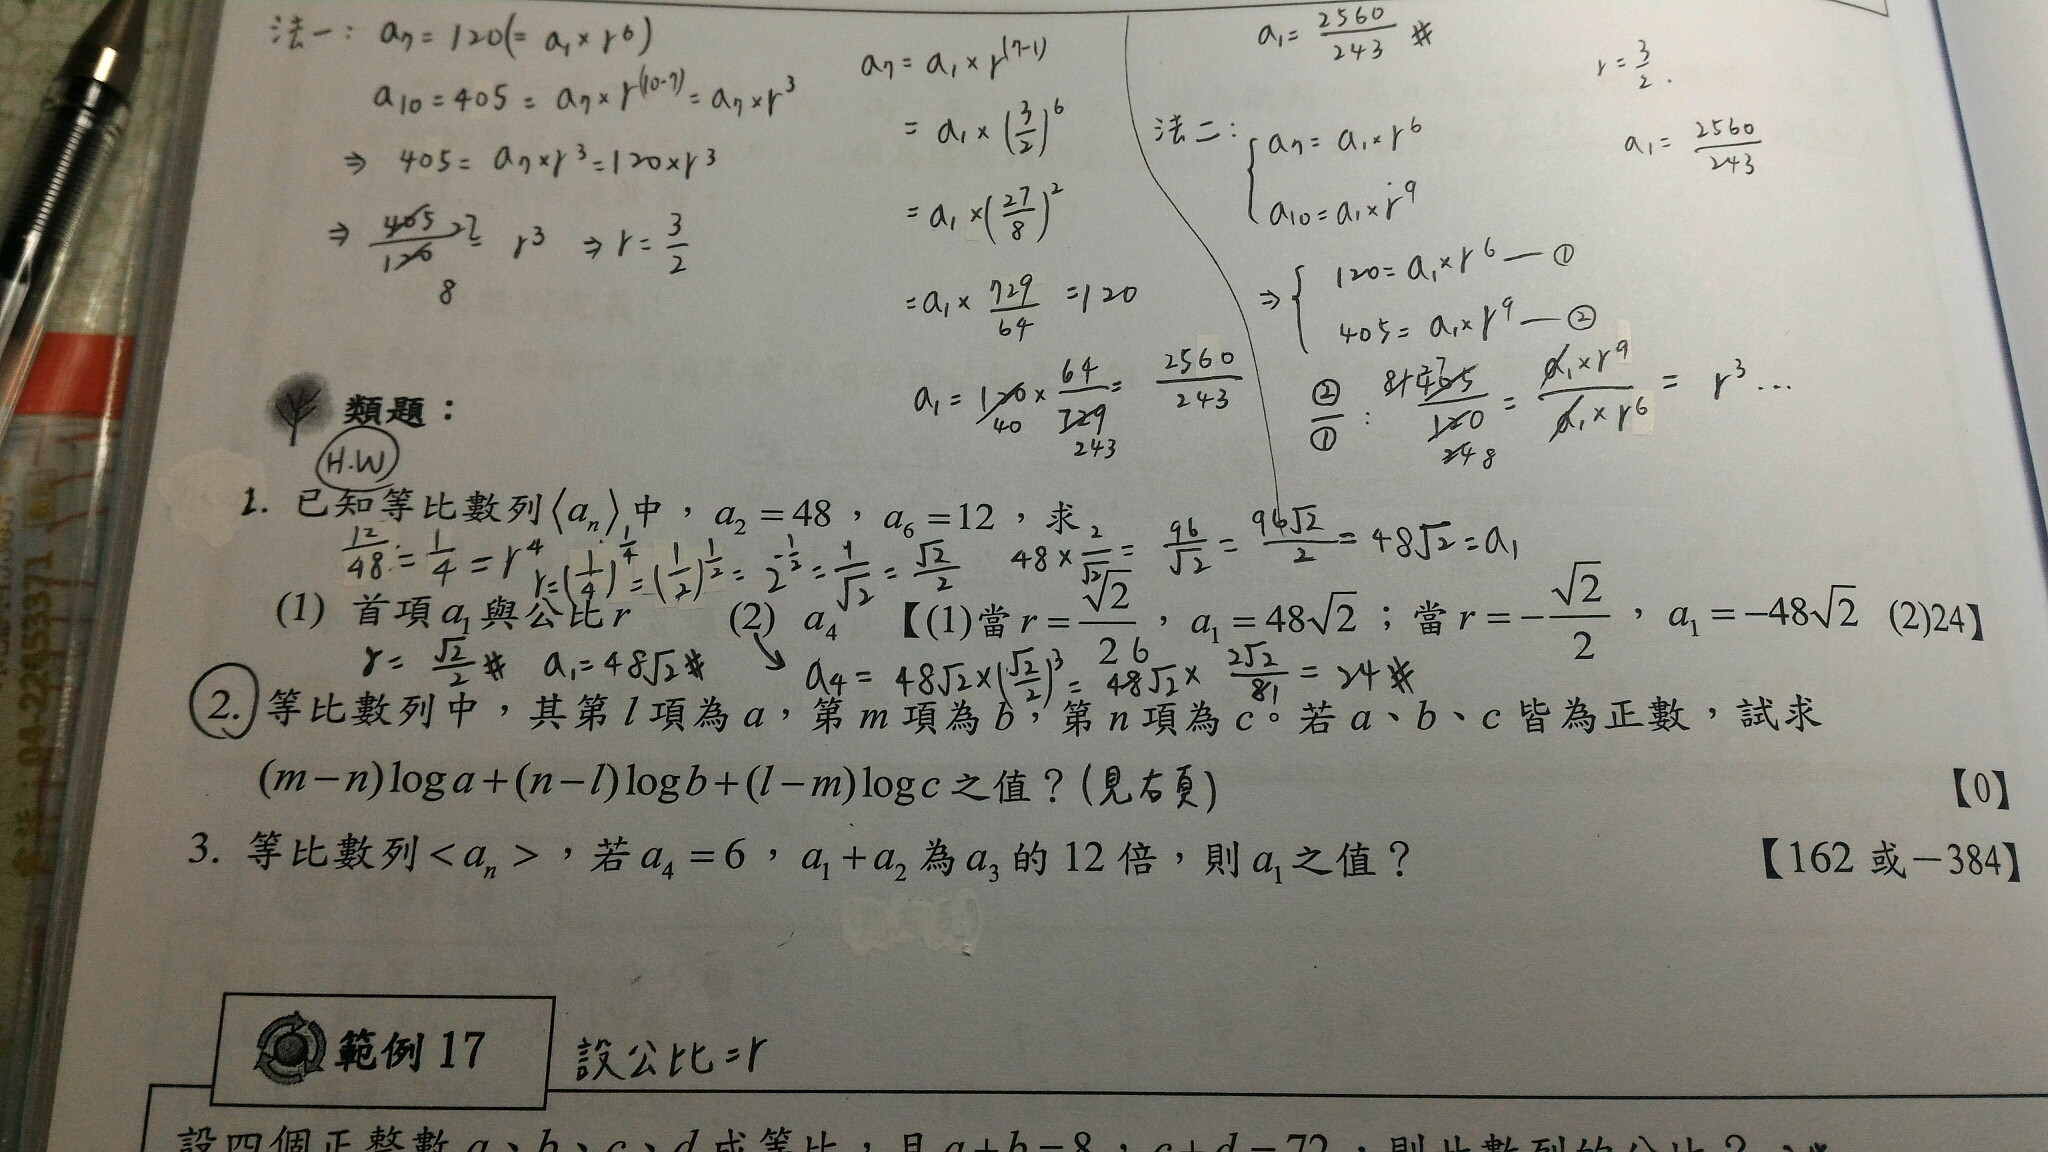 法一: a₇ = 120(= a₁ × r⁶)
a₁₀ = 405 = a₇ × r⁽¹⁰⁻⁷⁾ = a₇ × r³
⇒ 405 = a₇ × r³ = 120 × r³
⇒ 405/120 27/8 = r³ ⇒ r = 3/2
a₇ = a₁ × r⁽⁷⁻¹⁾
= a₁ × (3/2)⁶
= a₁ × (27/8)²
= a₁ × 729/64 = 120
a₁ = 120 40 × 64/729 243 = 2560/243
a₁ = 2560/243 #
r = 3/2.
a₁ = 2560/243
法二: { a₇ = a₁ × r⁶
a₁₀ = a₁ × r⁹
⇒ { 120 = a₁ × r⁶ — ①
405 = a₁ × r⁹ — ②
②/① : 81 27 405/120 24 8 = a₁ × r⁹/a₁ × r⁶ = r³ ...
類題:
H.W
1. 已知等比數列⟨aₙ⟩中，a₂ = 48，a₆ = 12，求
12/48 = 1/4 = r⁴ r = (1/4)^(1/4) = (1/2)^(1/2) = 2^(-1/2) = 1/√2 = √2/2 48 × 2/√2 = 96/√2 = 96√2/2 = 48√2 = a₁
(1) 首項a₁與公比r (2) a₄ 【(1)當r = √2/2，a₁ = 48√2；當r = −√2/2，a₁ = −48√2 (2)24】
r = √2/2 # a₁ = 48√2 # a₄ = 48√2 × (√2/2)³ = 48√2 6 × 2√2/8 1 = 24 #
2. 等比數列中，其第 l 項為 a，第 m 項為 b，第 n 項為 c。若 a、b、c 皆為正數，試求
(m−n)log a+(n−l)log b+(l−m)log c 之值？(見右頁) 【0】
3. 等比數列<aₙ>，若a₄ = 6，a₁ + a₂ 為a₃ 的 12 倍，則a₁之值？ 【162 或−384】
範例 17 設公比=r
設四個正整數 a、b、c、d 成等比，且 a+b=8，c+d=72，則此數列的公比？